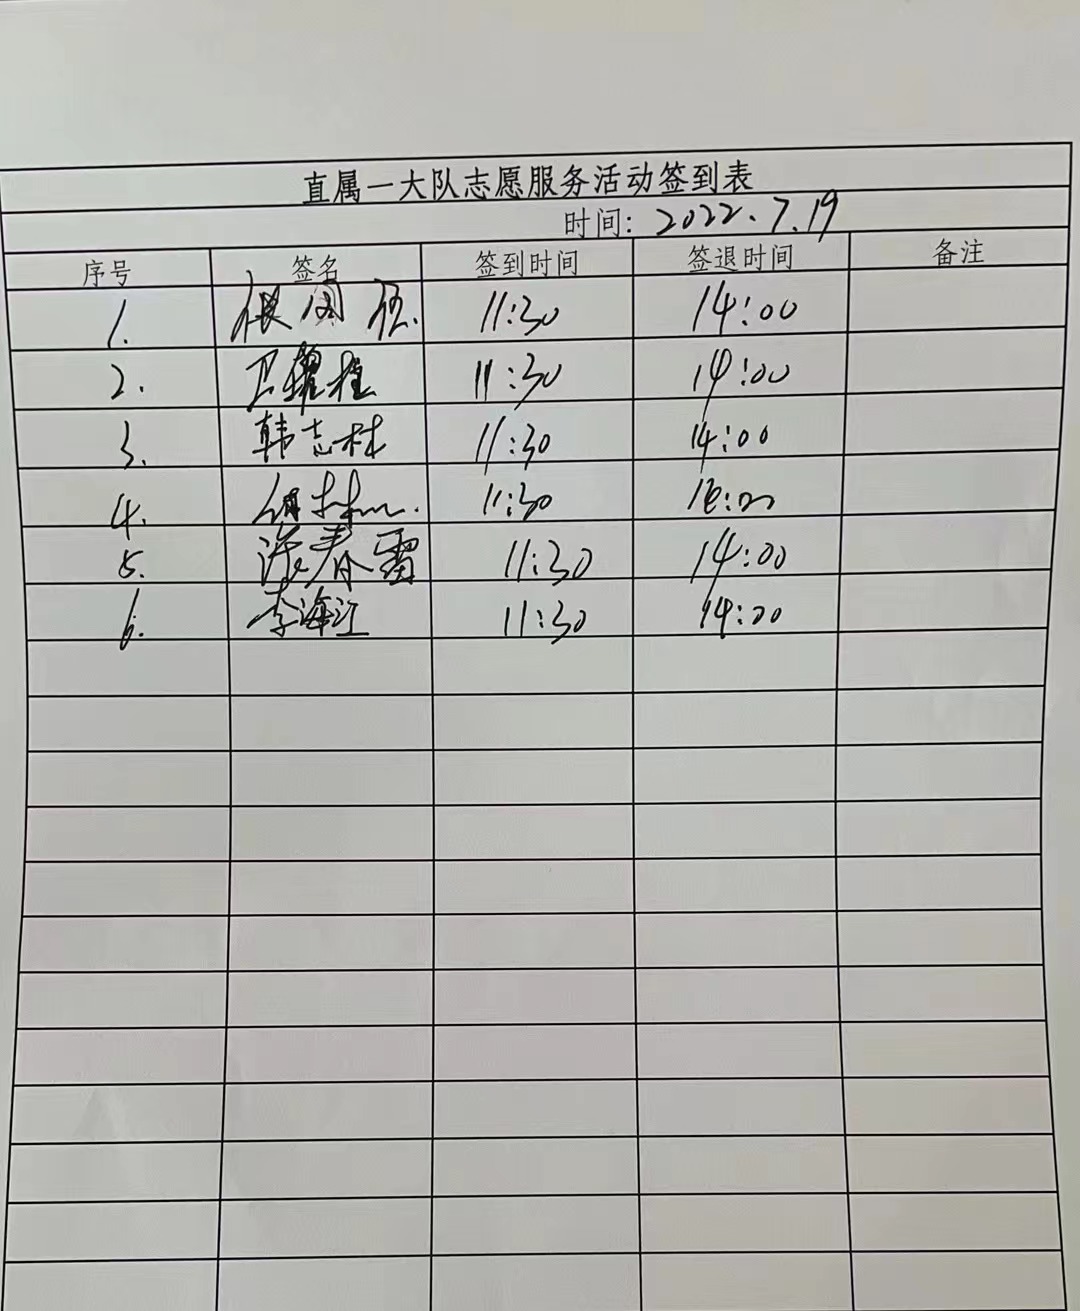 直属一大队志愿服务活动签到表
时间: 2022.7.19
序号 签名 签到时间 签退时间 备注
1. 11:30 14:00
2. 卫耀柱 11:30 14:00
3. 韩志林 11:30 14:00
4. 11:30 14:00
5. 张春雷 11:30 14:00
6. 李海江 11:30 14:00